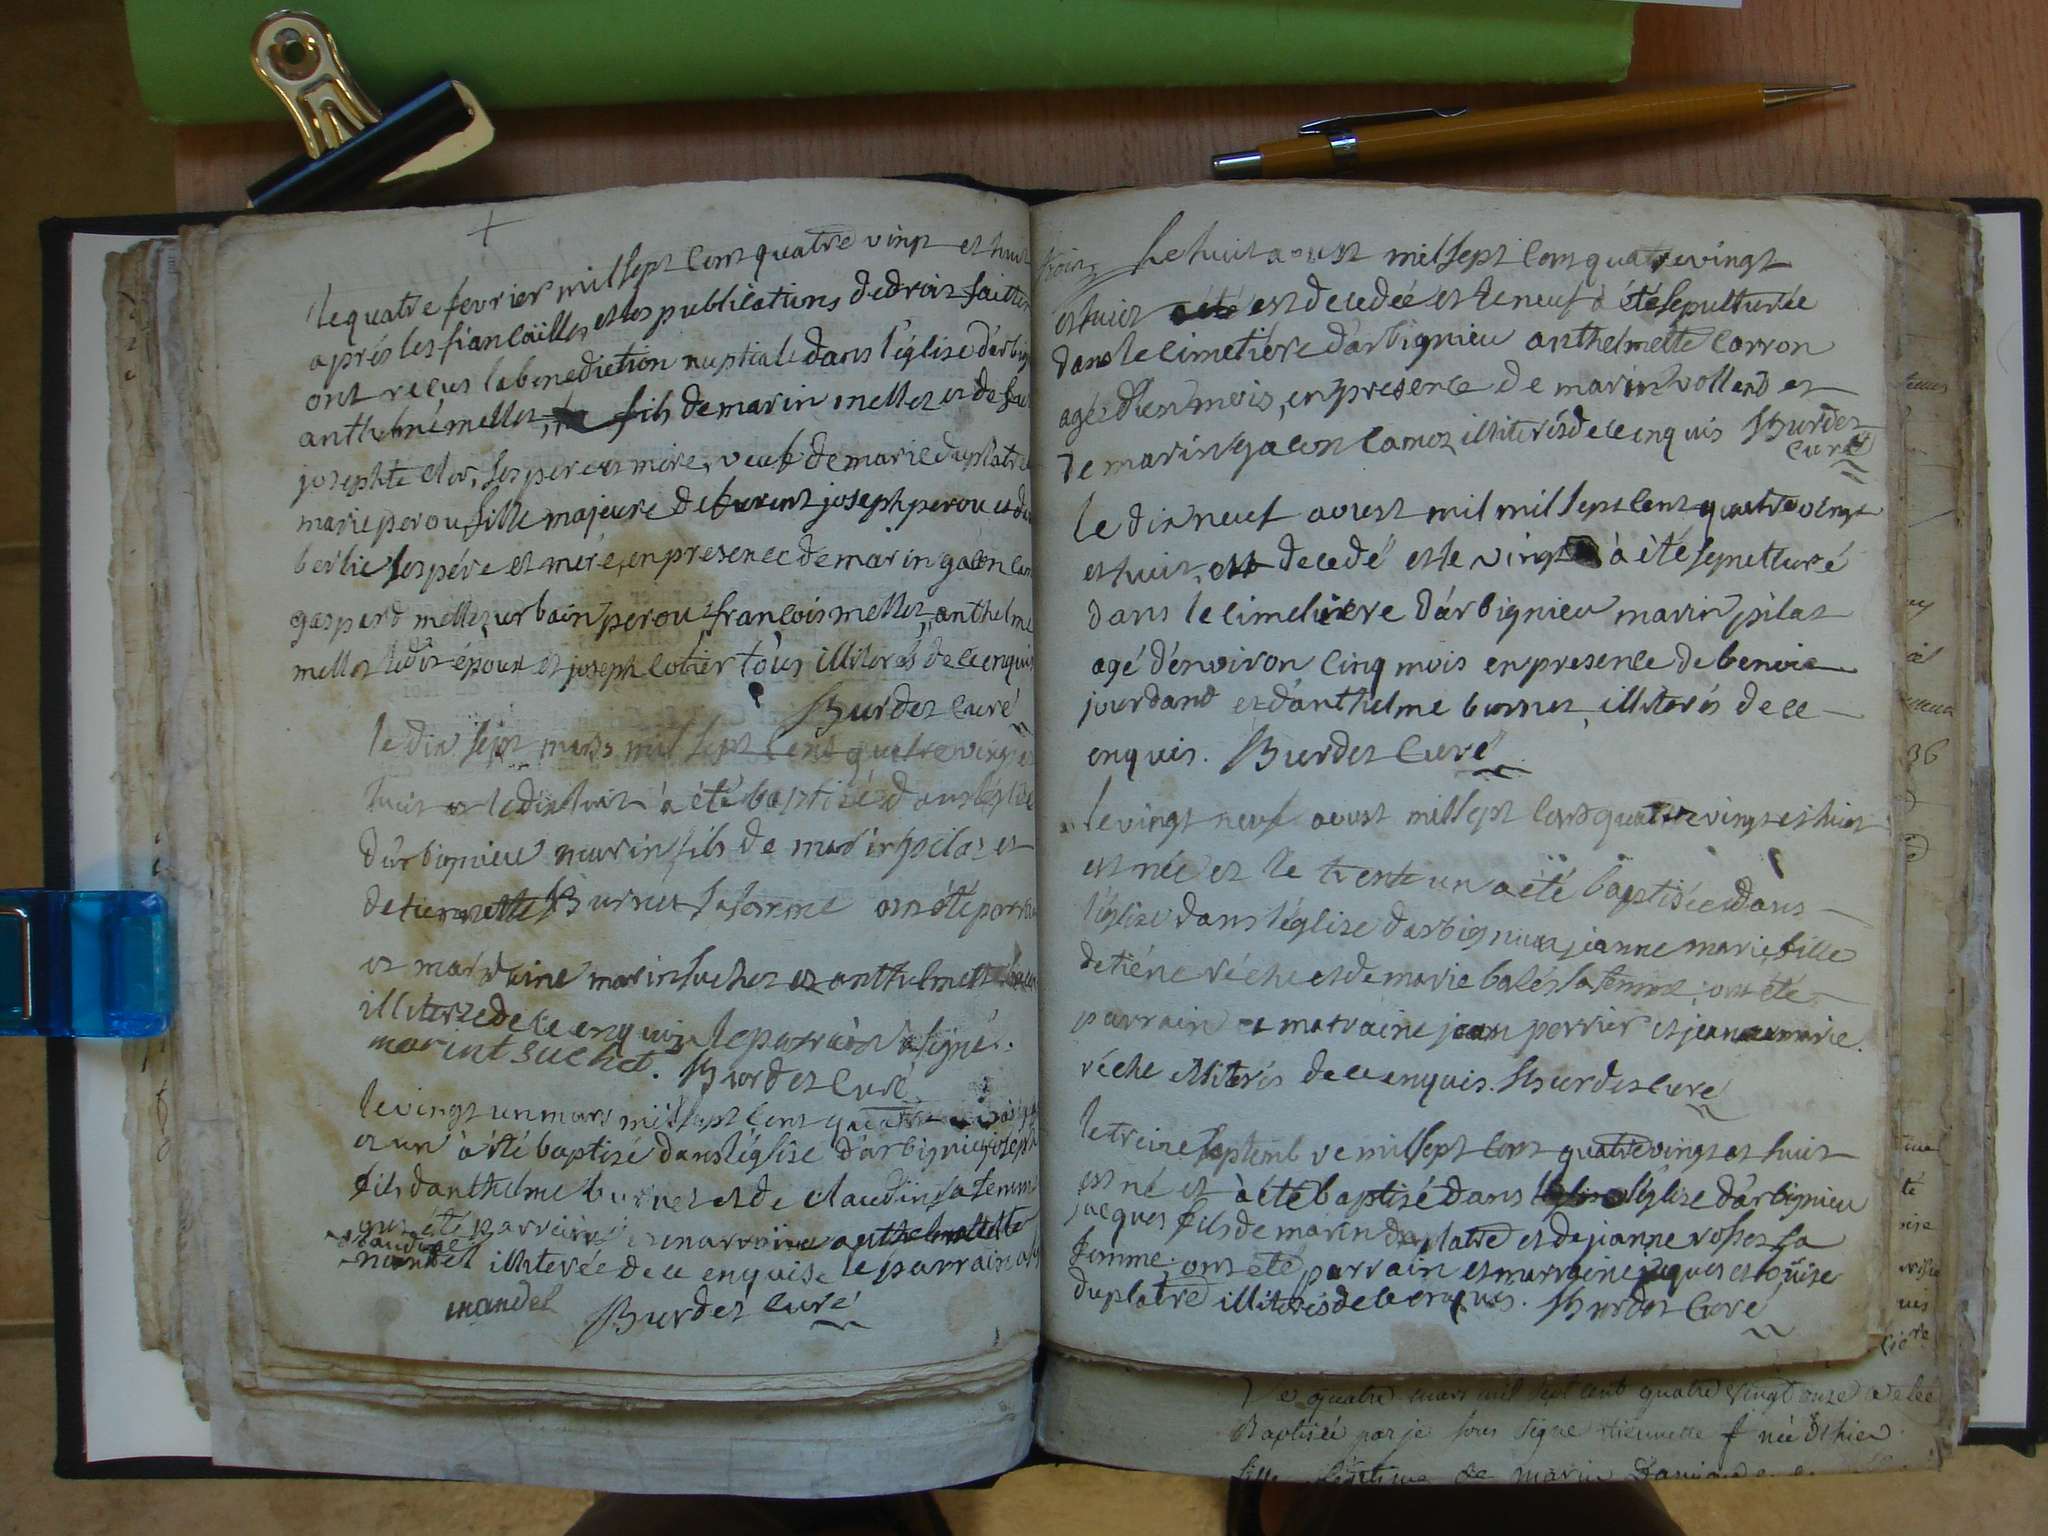 le quatre fevrier mil sept cent quatre vingt et huit
aprés les fiancailles et les publications de droit faittes
ont reçus la benediction nuptiale dans l'église d'arbig
anthelmé mellet, fils de marin mellet et de
josephte clor, ses pere et mere, veuf de marie duplatre
marie perou fille majeure de laurent joseph perou et de
berlie ses pére et mére, en presence de marin galon cam
gaspard mellet, urbain perou, francois mellet, anthelme
mellet ledit époux et joseph cotier tous illiterés de ce enquis
Burdet curé
le dix sept mars mil sept cent quatre vingt et
huit et le dix huit à été baptisé dans l'église
d'arbignieu marin fils de marin pilat et
de tiennette Burnet sa femme ont été parrain
et marraine marin suchet et anthelmette
illiterée de ce enquise le parrain a signé.
marint suchet. Burdet curé
le vingt un mars mil sept cent quatre
et un à été baptisé dans l'église d'arbignieu joseph
fils d'anthelme burnet et de claudine sa femme
ont été parrain et marraine anthelmette
claudine
mandet illiterée de ce enquise le parrain a
mandel Burdet curé
Le huit aoust mil sept cent quatre vingt
et huit est decedée et le neuf à été sepulturée
dans le cimetiére d'arbignieu anthelmette carron
agée d'un mois, en presence de marin vollerd et
de marin galon camoz illiterés de ce enquis Burdet
curé
le dix neuf aoust mil mil sept cent quatre vingt
et huit, est decedé et le vingt à été sepulturé
dans le cimetiere d'arbignieu marin pilat
agé d'environ cinq mois en presence de benoit
jourdand et d'anthelme burnet, illiterés de ce
enquis. Burdet curé
le vingt neuf aoust mil sept cent quatre vingt et huit
est née et le trente un a été baptisée dans
l'église dans l'église d'arbignieu jeanne marie fille
de tiéne réche et de marie balés sa femme; ont été
parrain et marraine jean perrier et jeanne marie
réche illiterés de ce enquis. Burdet curé
le treize septembre mil sept cent quatre vingt et huit
est né et à été baptisé dans l'église l'église d'arbignieu
jacques fils de marin duplatre et de jeanne rosset sa
femme, ont été parrain et marraine jaques et loüise
duplatre illiterés de ce enquis. Burdet curé
Le quatre mars mil sept cent quatre vingt onze a eté
Baptisée par je sous signé tiennette f née d'hier
fille légitime de marin